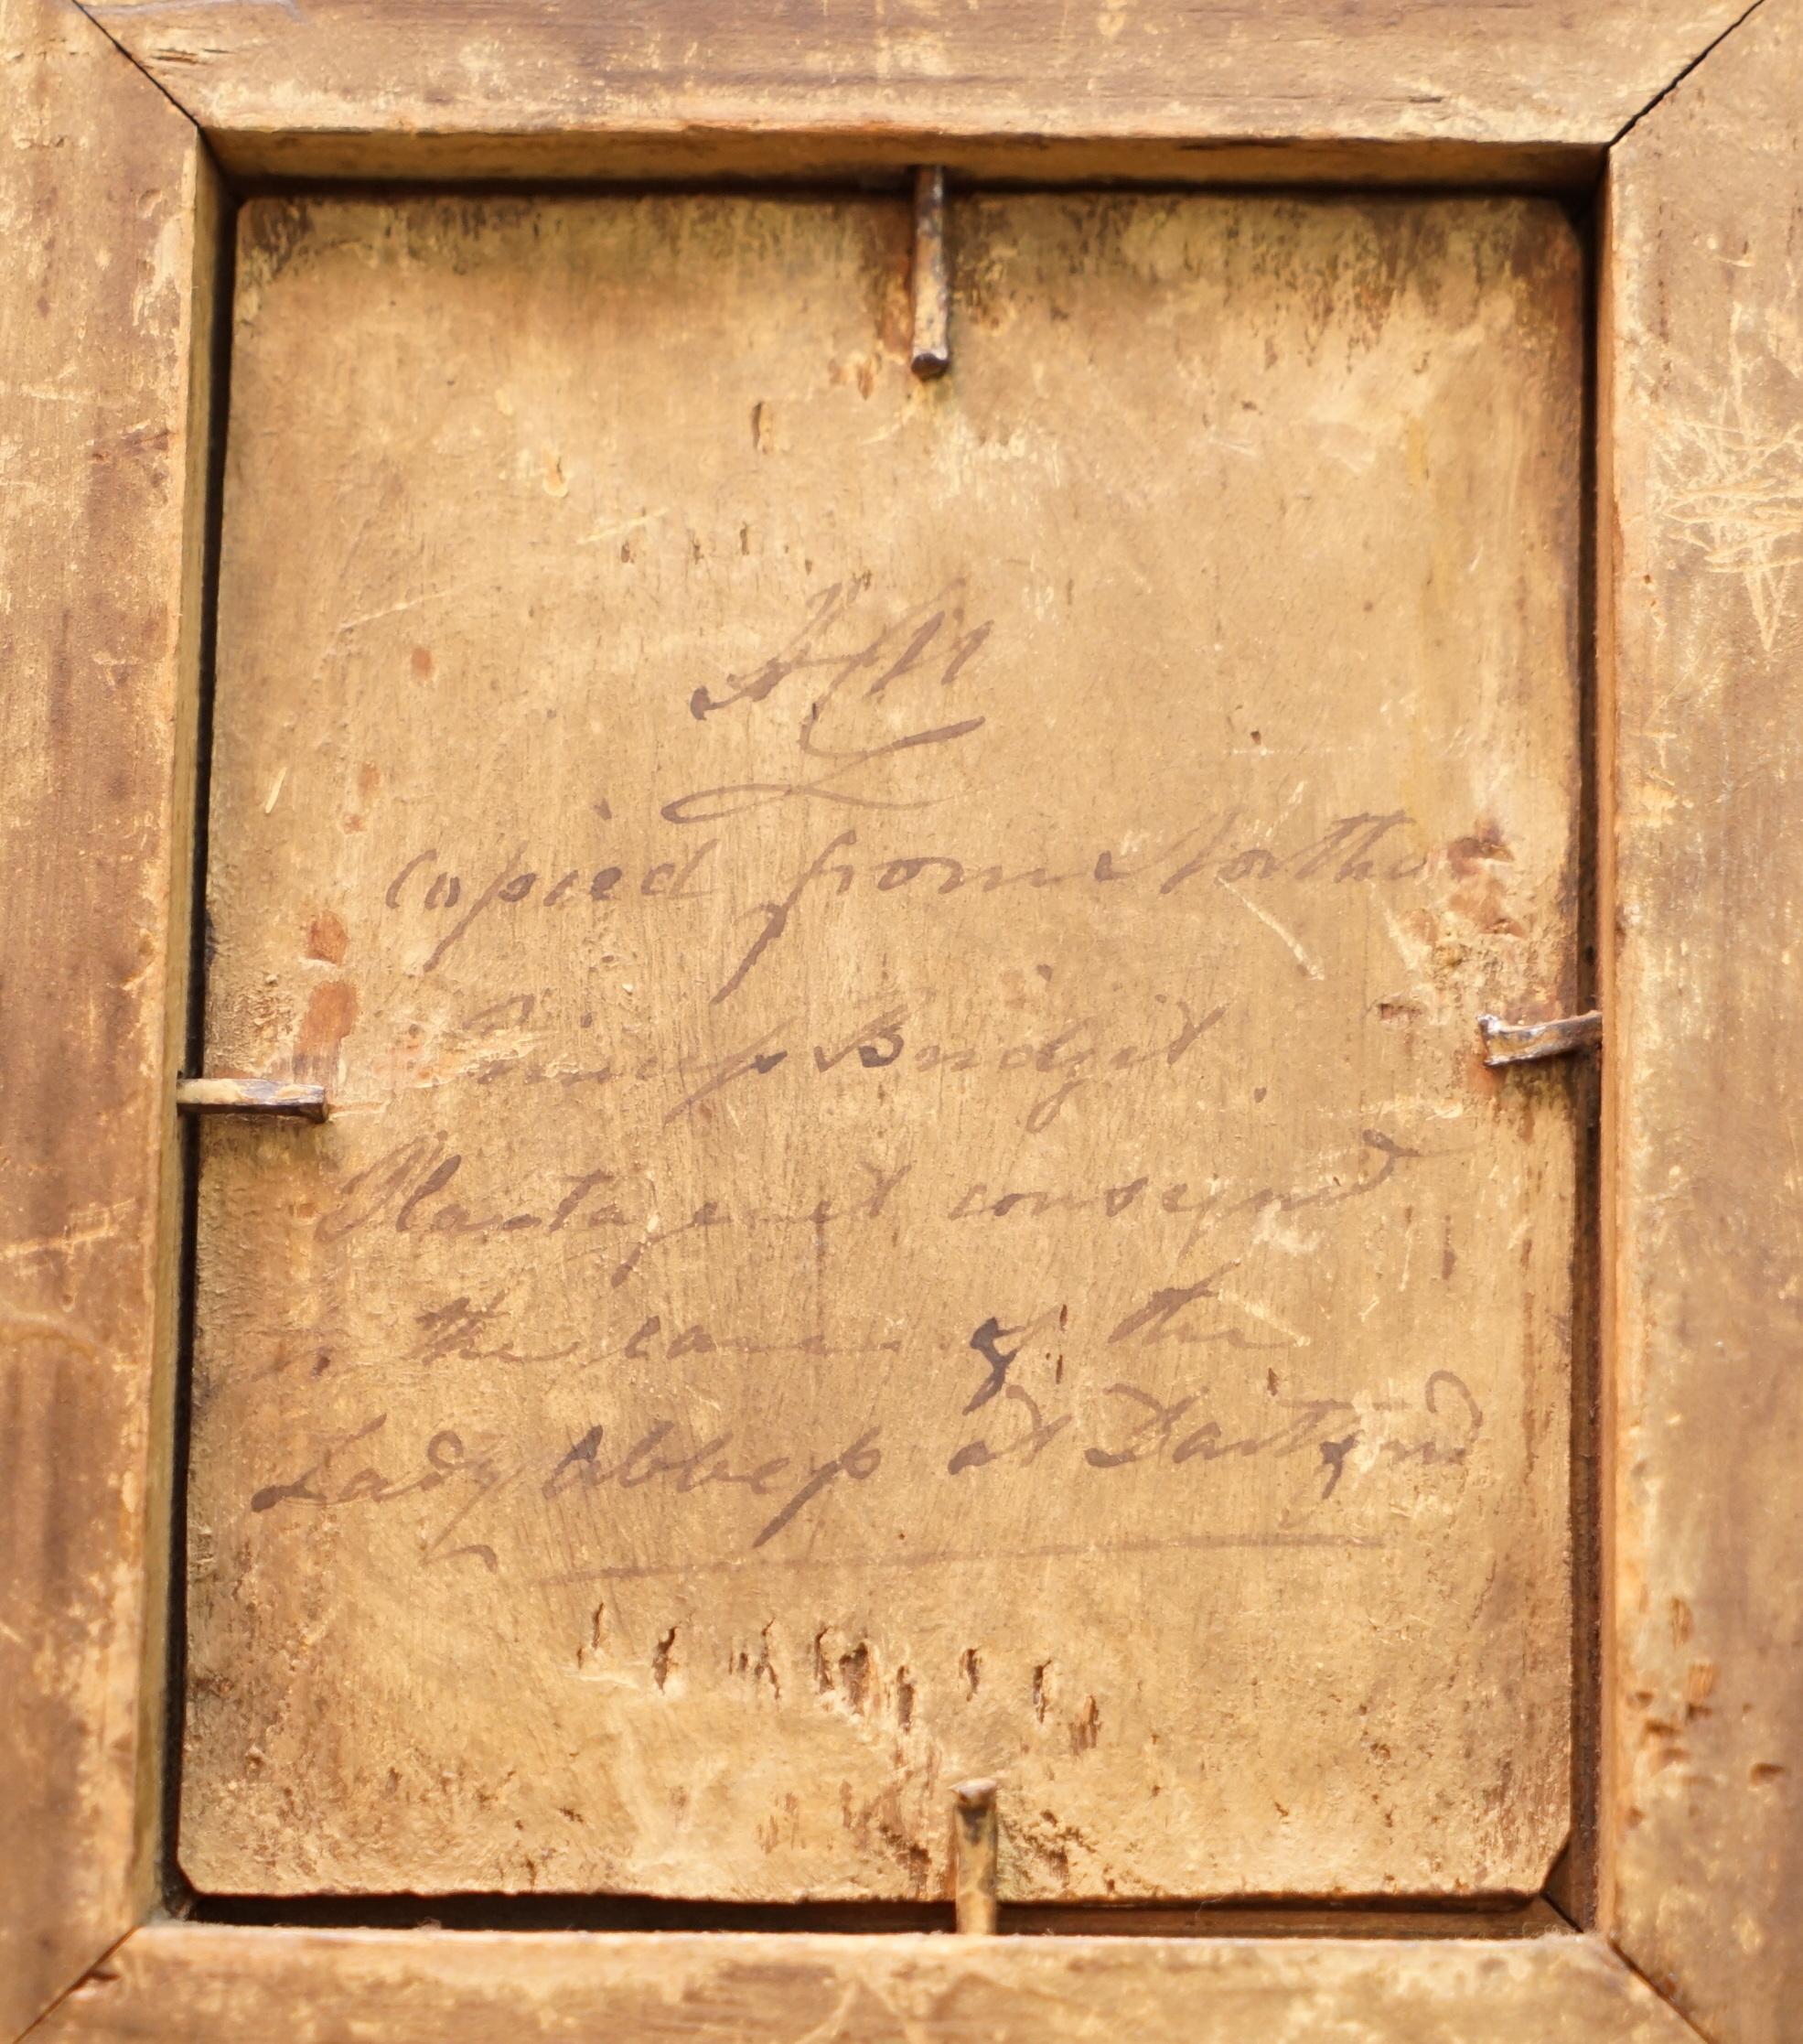 copied from Northcote
Princess Bridget
Plantagenet consign'd
to the care of the
Lady Abbess at Dartford